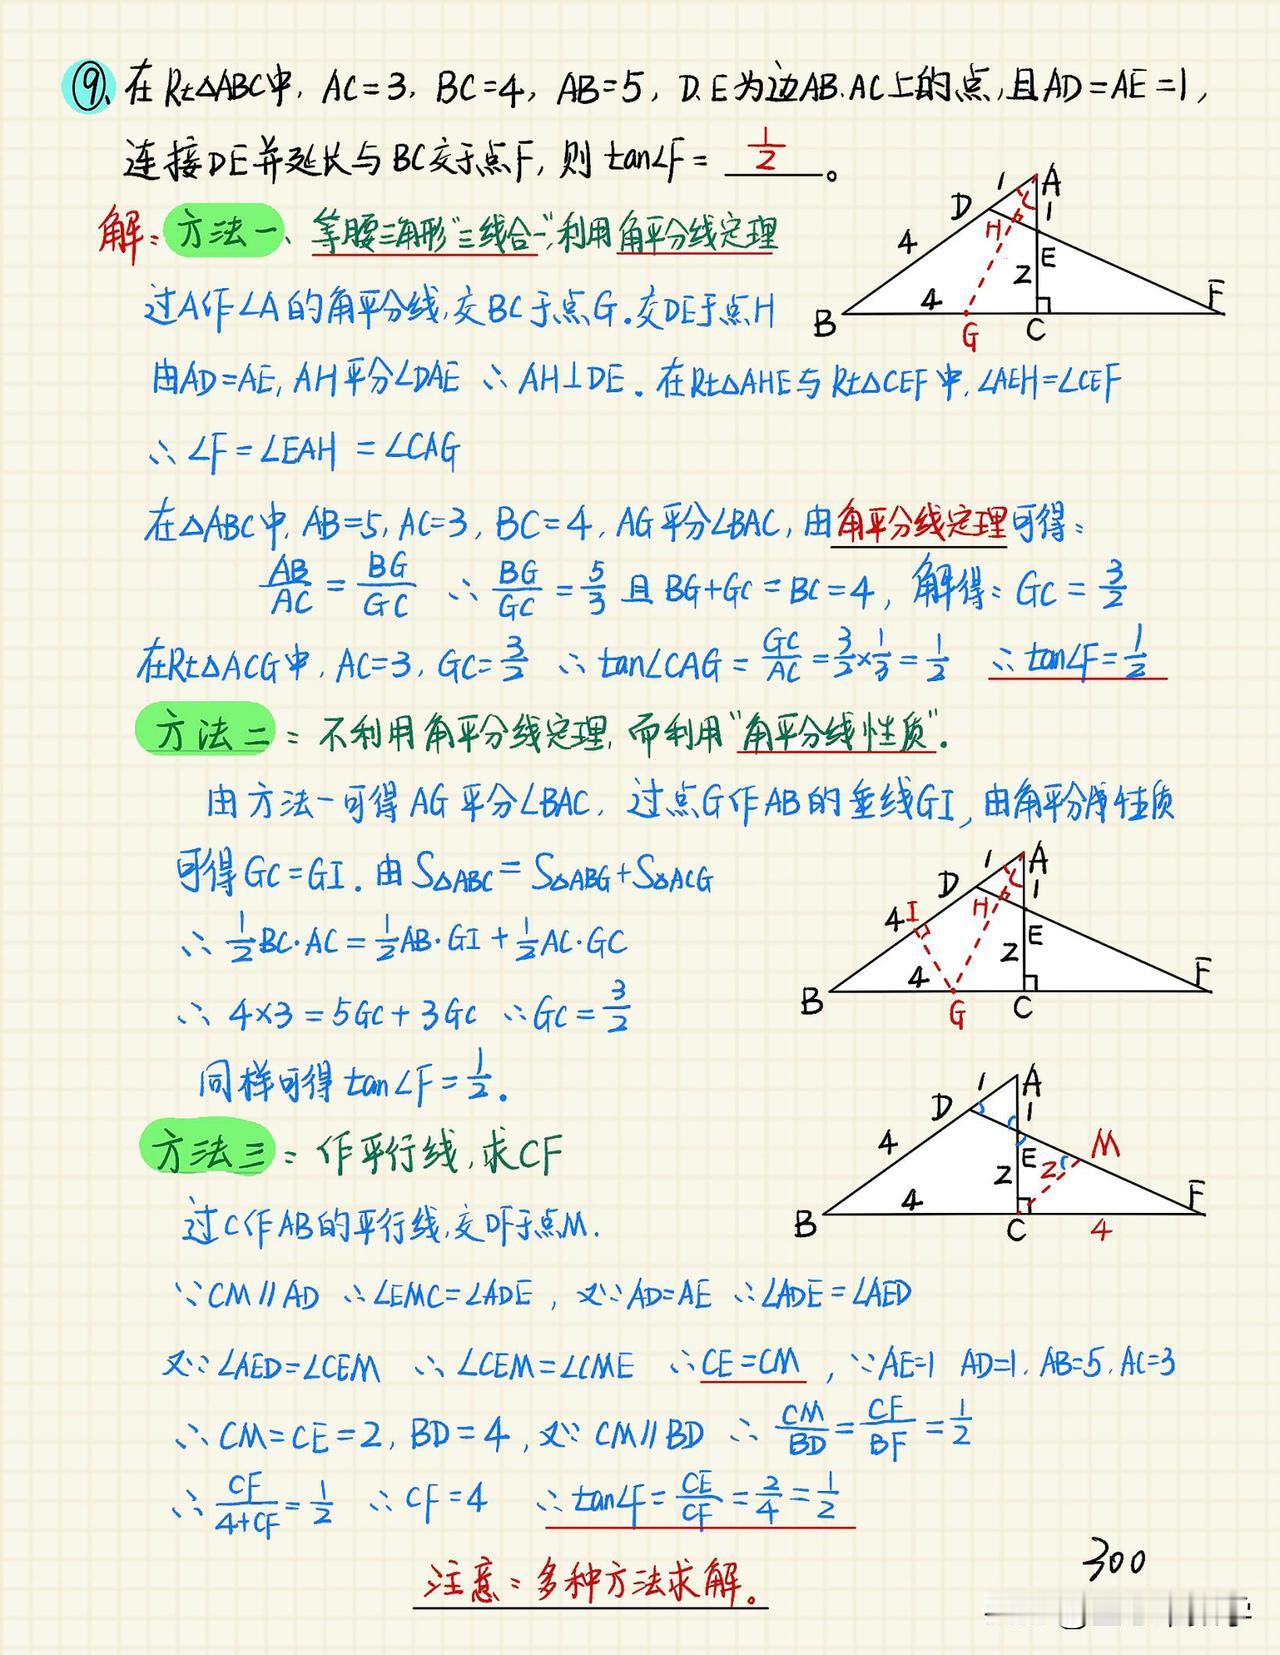 ⑨、在Rt△ABC中, AC=3, BC=4, AB=5, D.E为边AB.AC上的点,且AD=AE=1,
连接DE并延长与BC交于点F, 则 tan∠F= 1/2 。
解: 方法一、等腰三角形“三线合一”,利用角平分线定理
过A作∠A的角平分线,交BC于点G.交DE于点H
由AD=AE, AH平分∠DAE ∴AH⊥DE. 在Rt△AHE与Rt△CEF中, ∠AEH=∠CEF
∴∠F=∠EAH =∠CAG
在△ABC中, AB=5, AC=3, BC=4, AG平分∠BAC, 由角平分线定理可得:
AB/AC = BG/GC ∴ BG/GC = 5/3 且 BG+GC=BC=4, 解得: GC = 3/2
在Rt△ACG中, AC=3, GC=3/2 ∴tan∠CAG = GC/AC = 3/2×1/3 = 1/2 ∴tan∠F=1/2
A
1
1
D
H
E
4
2
B
4
G
C
F
方法二: 不利用角平分线定理, 而利用“角平分线性质”.
由方法一可得AG平分∠BAC, 过点G作AB的垂线GI, 由角平分线性质
可得GC=GI. 由S△ABC=S△ABG+S△ACG
∴ 1/2BC·AC=1/2AB·GI+1/2AC·GC
∴ 4×3=5GC+3GC ∴GC=3/2
同样可得 tan∠F=1/2.
A
1
1
D
H
I
4
E
2
B
4
G
C
F
方法三: 作平行线,求CF
过C作AB的平行线,交DF于点M.
∵CM∥AD ∴∠EMC=∠ADE, 又∵AD=AE ∴∠ADE=∠AED
又∵∠AED=∠CEM ∴∠CEM=∠CME ∴CE=CM, ∵AE=1 AD=1. AB=5. AC=3
∴CM=CE=2, BD=4, 又∵CM∥BD ∴ CM/BD = CF/BF = 1/2
∴ CF/4+CF = 1/2 ∴CF=4 ∴tan∠F= CE/CF = 2/4 = 1/2
A
1
1
D
M
4
E
2
2
B
4
C
4
F
注意: 多种方法求解。
300